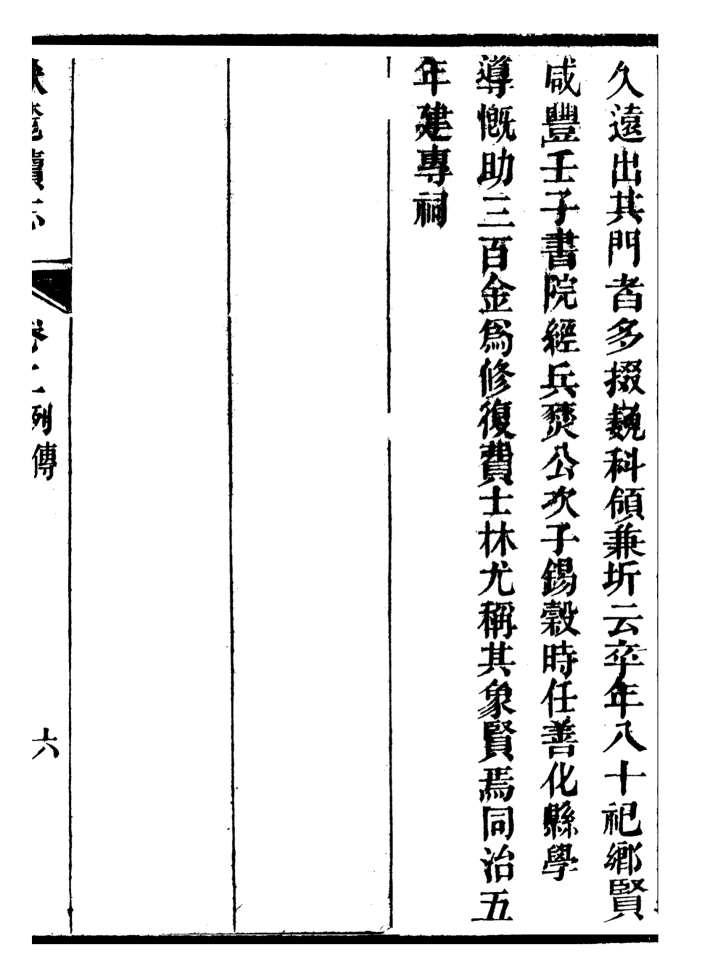 久遠出其門者多掇巍科領兼圻云卒年八十祀鄉賢
咸豐壬子書院經兵燹公次子錫穀時任善化縣學
導慨助三百金爲修復費士林尤稱其象賢焉同治五
年建專祠
嶽麓續志
卷二列傳
六